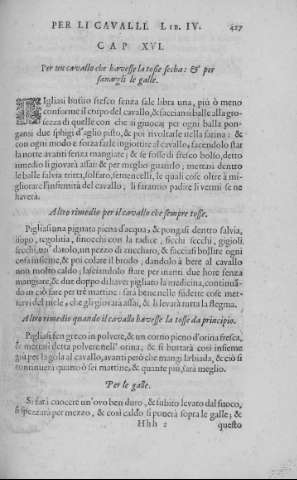 PER LI CAVALLI. LIB. IV. 427
CAP. XVI.
Per un cavallo che havesse la tosse secha: & per
sanargli le galle.
PIgliasi butiro fresco senza sale libra una, più ò meno
conforme il corpo del cavallo, & facciansi balle alla gros-
sezza di quelle con che si giuoca; per ogni balla pon-
gansi due sphigi d'aglio pisto, & poi rivoltarle nella farina: &
con ogni modo e forza farle ingiottire al cavallo, facendolo stat
la notte avanti senza mangiare; & se fosse di fresco bolso, detto
rimedio si giovarà assai: & per meglio giutarlo, mettasi dentro
le balle salvia trita, solfaro, semencelli, le quali cose oltre à mi-
gliorare l'infirmità del cavallo, li faranno padire li vermi se ne
haverà.
Altro rimedio per il cavallo che sempre tosse.
Pigliasi una pignata piena d'acqua, & pongasi dentro salvia,
isopo, regolitia, finocchi con la radice, ficchi secchi, gigioli
secchi, un datolo, un pezzo di zucchero, & facciasi bollire ogni
cosa insieme, & poi colare il brodo, dandolo à bere al cavallo
non molto caldo; lasciandolo stare per inanti due hore senza
mangiare, & due doppo di haver pigliato la medicina, continuã-
do in ciò fare per tre mattine: sarà bene nelle sudette cose met-
tarvi del miele, che gli giovarà assai, & li levarà tutta la flegma.
Altro rimedio quando il cavallo havesse la tosse da principio.
Pigliasi fen greco in polvere, & un corno pieno d'orina fresca,
& mettasi detta polvere nell'orina, & si buttarà così insieme
giù per la gola al cavallo, avanti però che mangi la biada, & ciò si
continuerà quatro ò sei mattine, & quante più, sarà meglio.
Per le galle.
Si farà cuocere un'ovo ben duro, & subito levato dal fuoco,
si spezzarà per mezzo, & così caldo si ponerà sopra le galle; &
Hhh 2 questo